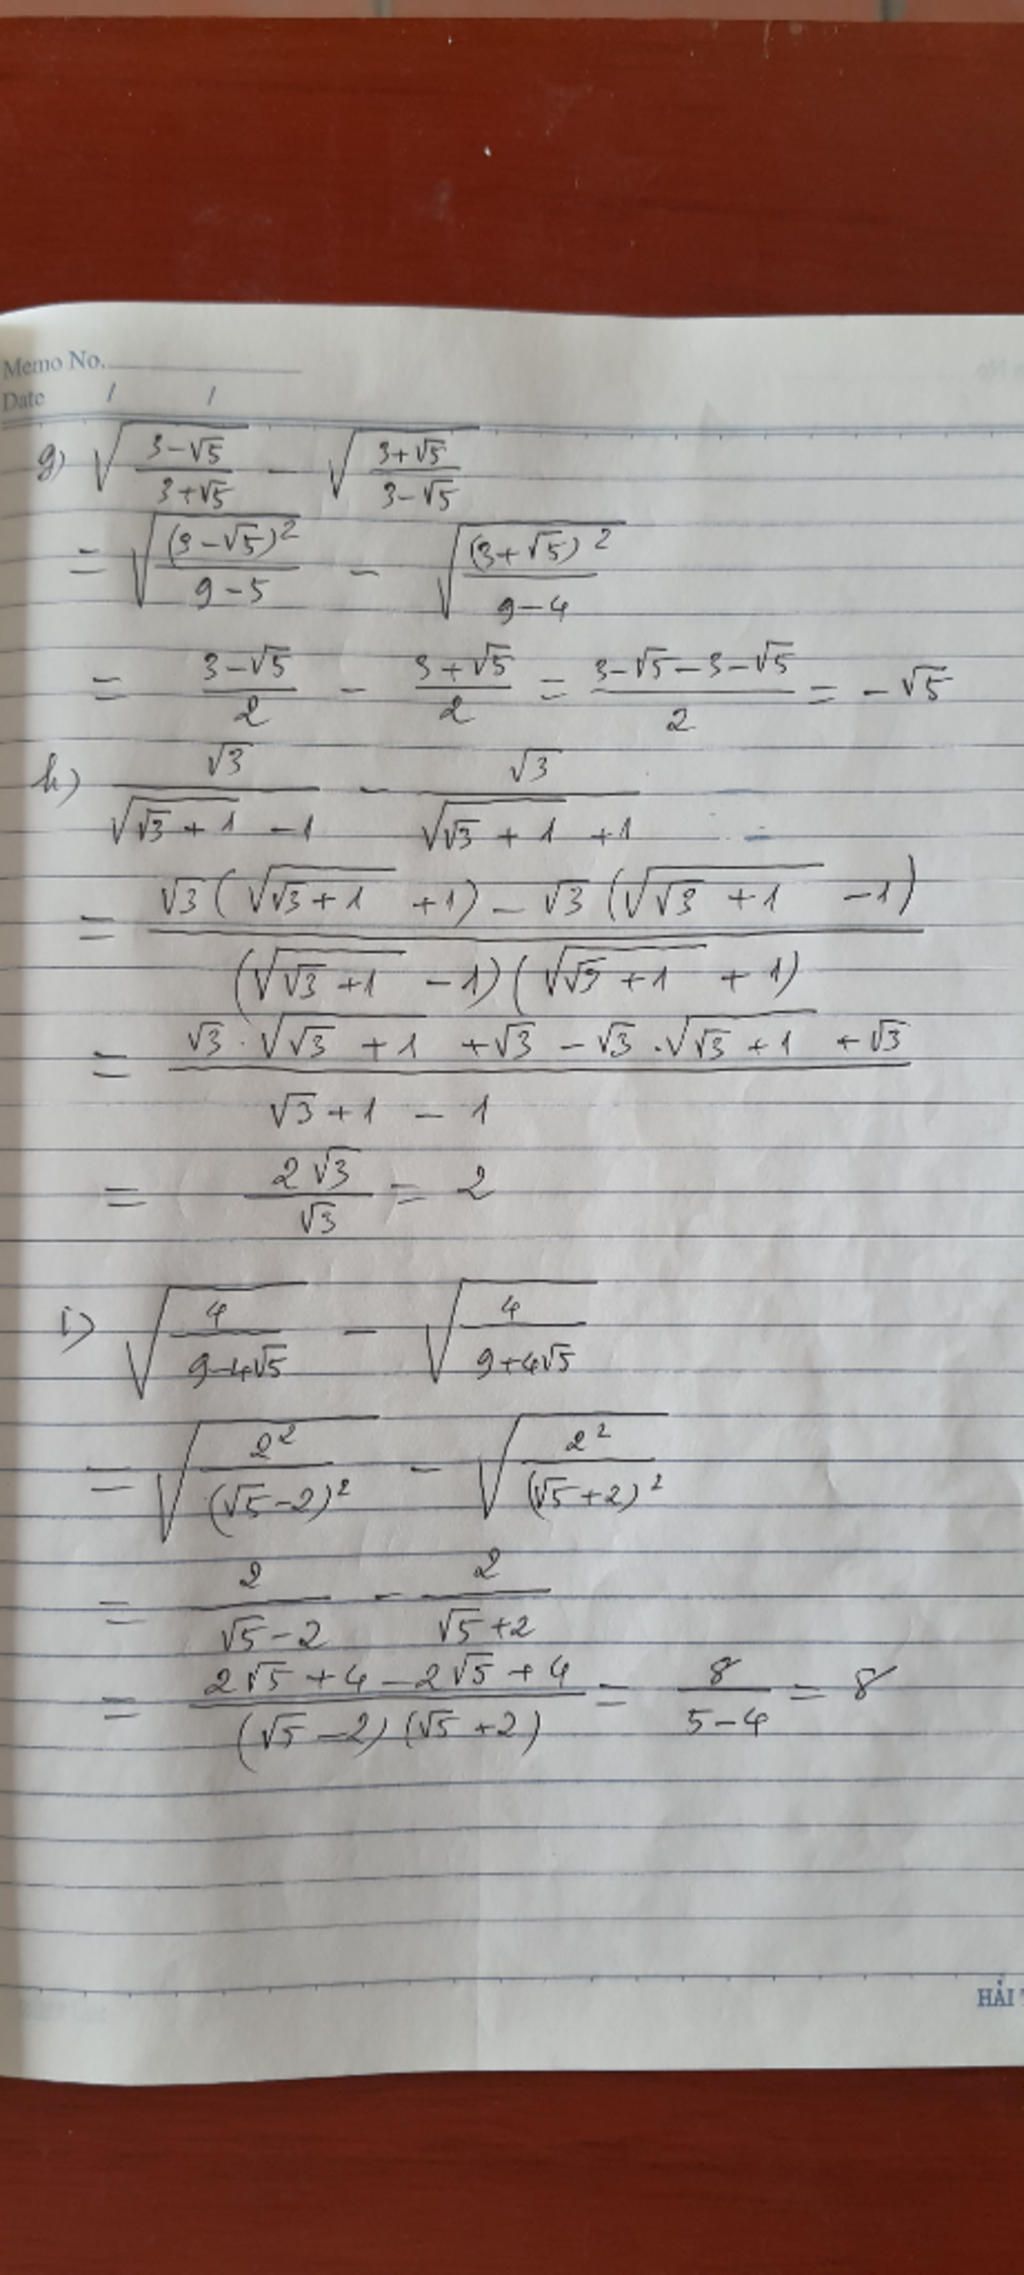 Memo No.
Date / /
g) √((3-√5)/(3+√5)) - √((3+√5)/(3-√5))
= √((3-√5)²/(9-5)) - √((3+√5)²/(9-4))
= (3-√5)/2 - (3+√5)/2 = (3-√5-3-√5)/2 = -√5
h) √3/(√(√3+1) -1) - √3/(√(√3+1) +1)
= (√3(√(√3+1) +1) - √3(√(√3+1) -1))/((√(√3+1) -1)(√(√3+1) +1))
= (√3.√(√3+1) +√3 -√3.√(√3+1) +√3)/(√3+1 - 1)
= 2√3/√3 = 2
i) √(4/(9-4√5)) - √(4/(9+4√5))
= √(2²/(√5-2)²) - √(2²/(√5+2)²)
= 2/(√5-2) - 2/(√5+2)
= (2√5+4-2√5+4)/((√5-2)(√5+2)) = 8/(5-4) = 8
HẢI